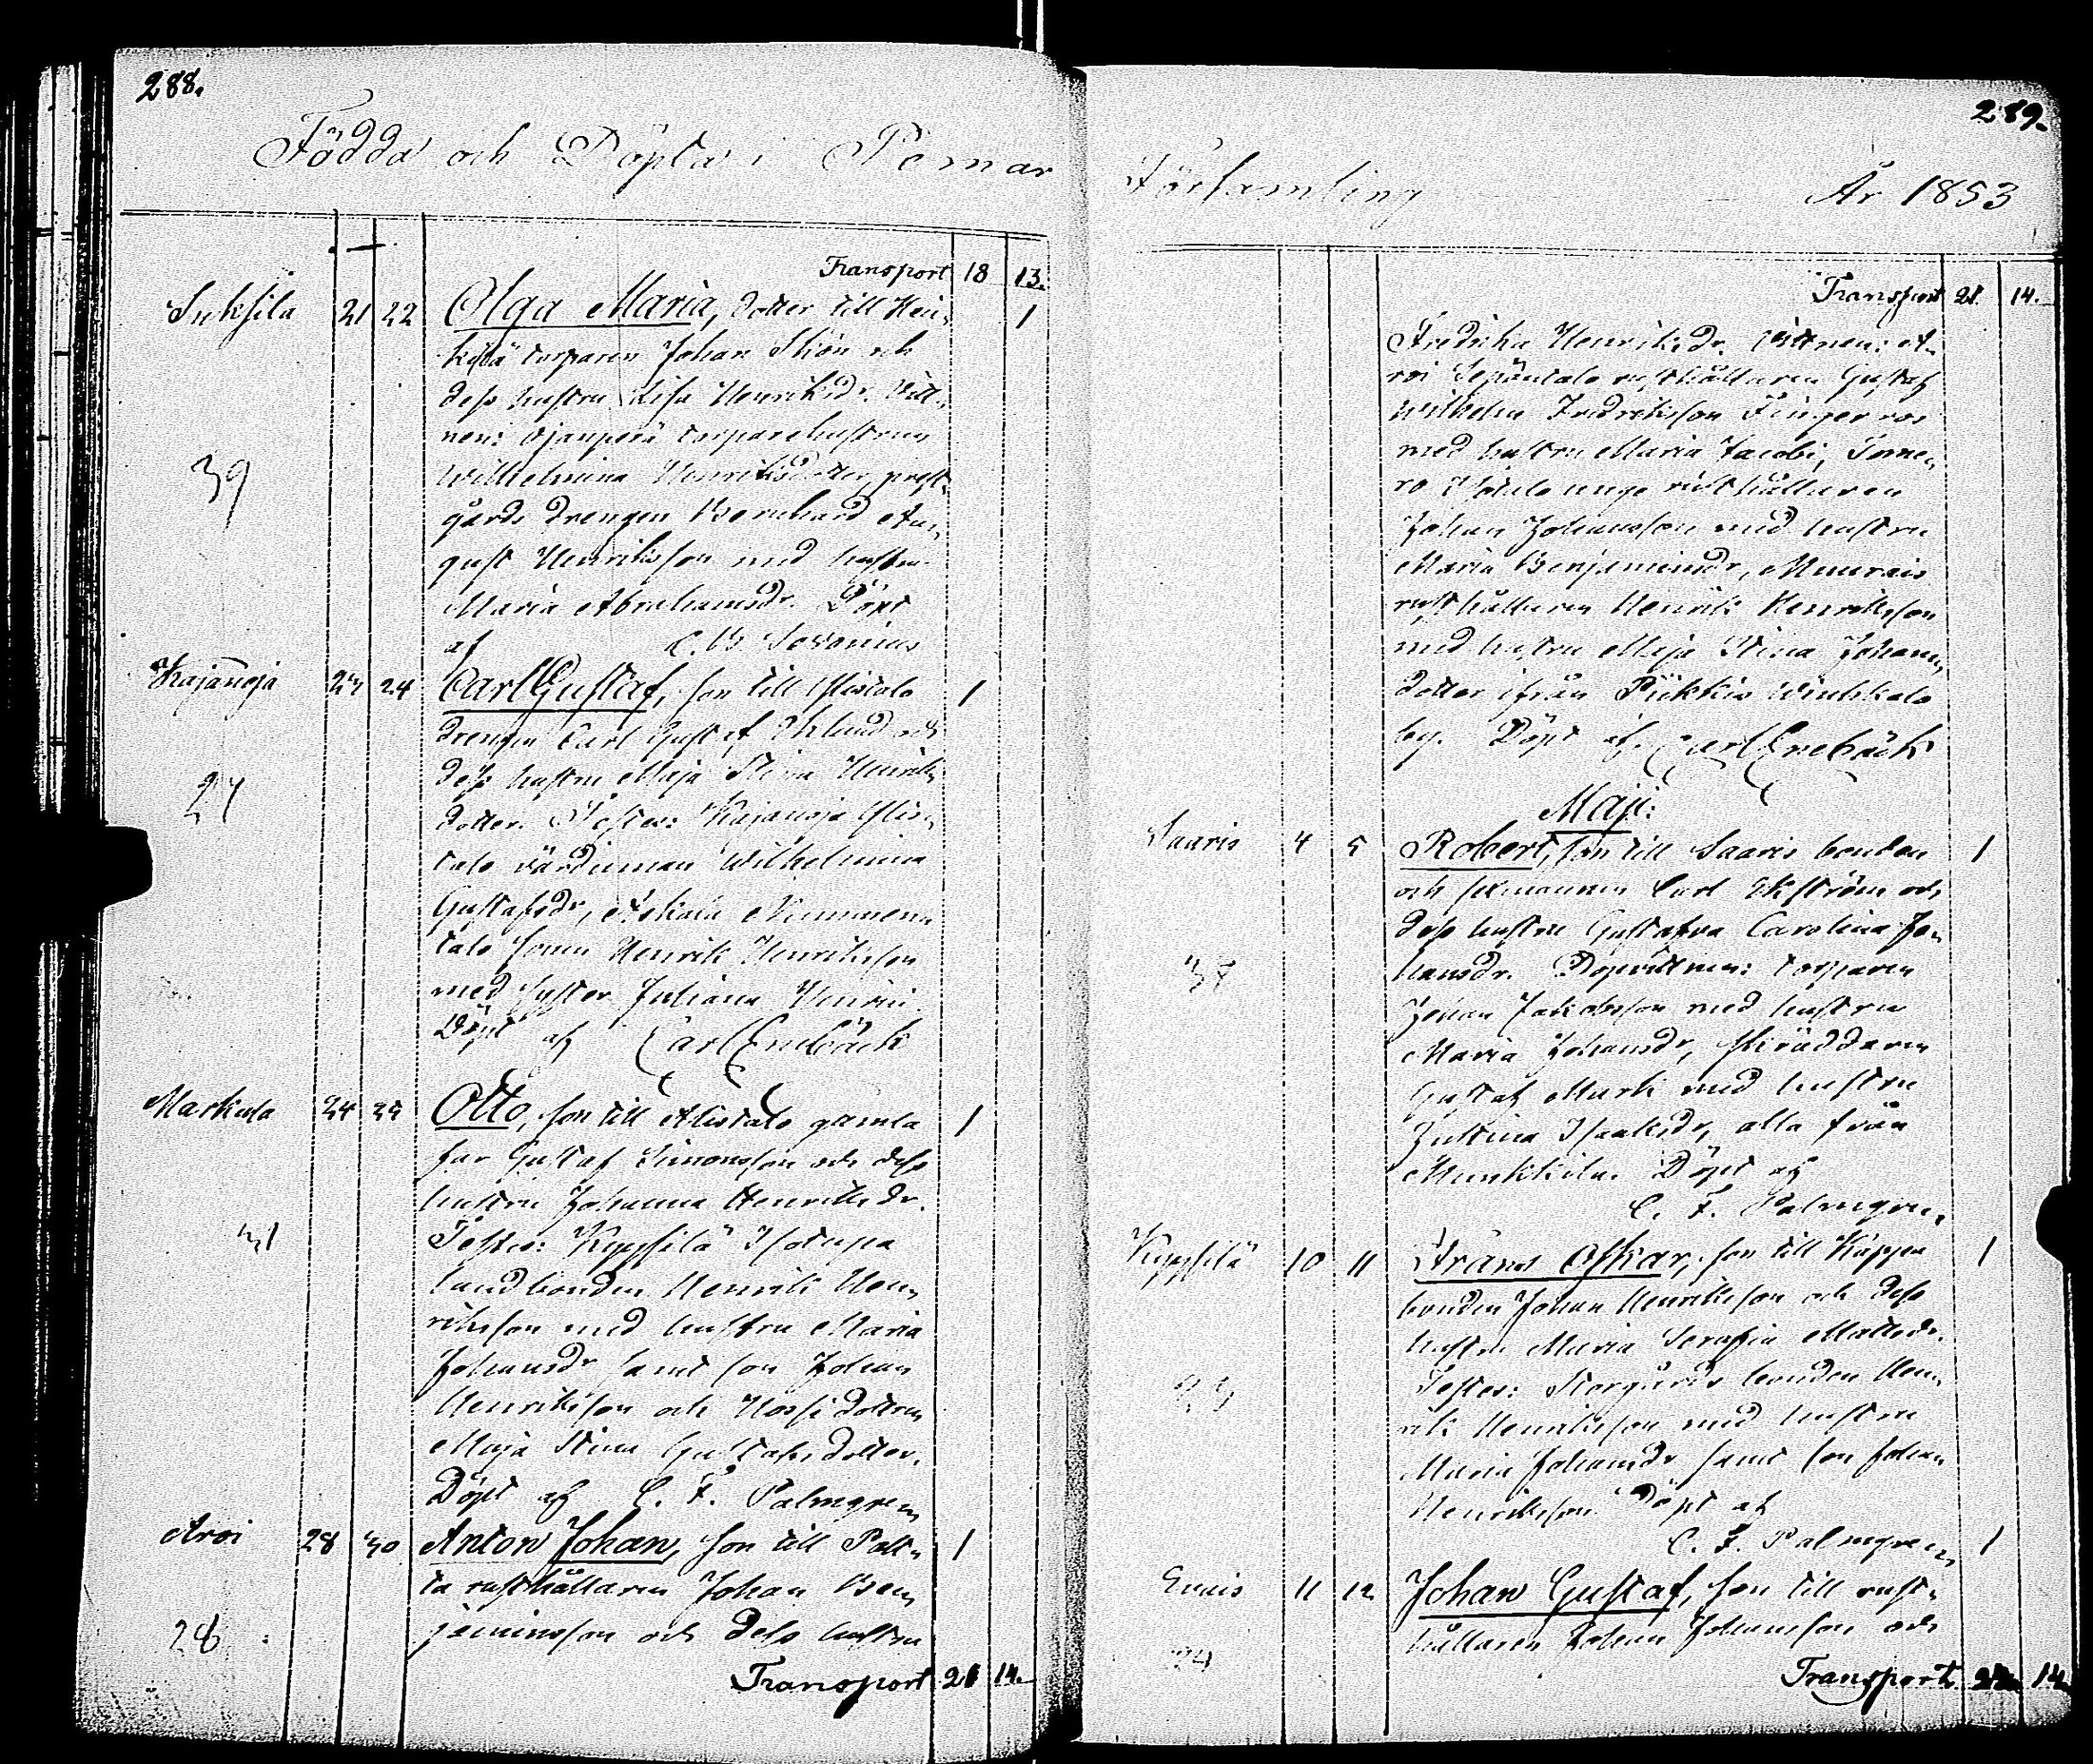 288.
Födda och Döpta i Pemar
Transport 18 13.
Suksila 21 22 Olga Maria, dotter till Hei-
torparen Johan Skön och
dess hustru Lisa Henriksdr. Vitt-
nen: Ojanperä torparehustrun
39 Wilhelmina Henriksdotter, prest-
gårds drengen Bernhard Au-
gust Henriksson med hustru
Maria Abrahamsdr. Döpt
af C. B.
Kajanoja 23 24 Carl Gustaf, son till Ylistalo 1
drengen Carl Gustaf Eklund och
27 dess hustru Maja Stina Henriks
dotter. Testes: Kajanoja Ylis-
talo värdinnan Wilhelmina
Gustafsdr, Askala Nummen-
talo sonen Henrik Henriksson
med syster Juliana Henrici.
Döpt af Carl Enebäck
Markula 24 25 Otto, son till Alistalo gamla 1
far Gustaf Simonsson och dess
hustru Johanna Henriksdr.
31 Testes: Kyppsilä Isotupa
landbonden Henrik Hen-
riksson med hustru Maria
Johansdr samt son Johan
Henriksson och Hossi dottren
Maja Stina Gustafsdotter.
Döpt af C. F. Palmgren
Arvi 28 30 Anton Johan, son till Pält- 1
tä rusthållaren Johan Ben-
28 jaminsson och dess hustru
Transport 21 14.
289.
Församling År 1853
Transport 21. 14.
Fredrika Henriksdr. Vittnen: Ar-
vi Sepäntalo rusthållaren Gustaf
Wilhelm Fredriksson Fingerroos
med hustru Maria Jacobi,
ro Isotalo unge rusthållaren
Johan Johansson med hustru
Maria Benjaminsdr,
rusthållaren Henrik Henriksson
med hustru Maja Stina Johans
dotter ifrån Piikkis
by. Döpt af Carl Enebäck
Maji:
Saaris 4 5 Robert, son till Saaris bonden 1
och sexmannen Carl Ekström och
dess hustru Gustafva Carolina Jo-
37 hansdr. Dopvittnen: torparen
Johan Jakobsson med hustru
Maria Johansdr, skräddaren
Gustaf Mark med hustru
Justina Isaksdr, alla från
Munkkila. Döpt af
C. F. Palmgren,
Kyppsilä 10 11 Frans Oskar, son till Käppä 1
bonden Johan Henriksson och dess
hustru Maria Serafia Mattsdr.
Testes: Storgårds bonden Hen-
rik Henriksson med hustru
Maria Johansdr samt son Johan
Henriksson. Döpt af
C. F. Palmgren, 1
Evais 11 12 Johan Gustaf, son till rust-
24 hållaren Johan Johansson och
Transport 14